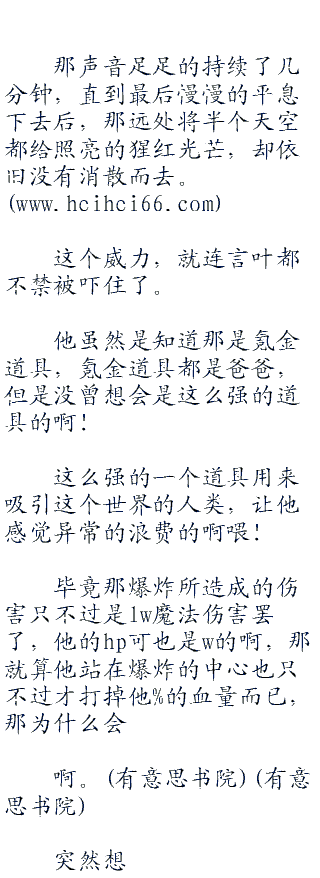 那声音足足的持续了几
分钟，直到最后慢慢的平息
下去后，那远处将半个天空
都给照亮的猩红光芒，却依
旧没有消散而去。
(www.hcihci66.com)
这个威力，就连言叶都
不禁被吓住了。
他虽然是知道那是氪金
道具，氪金道具都是爸爸，
但是没曾想会是这么强的道
具的啊！
这么强的一个道具用来
吸引这个世界的人类，让他
感觉异常的浪费的啊喂！
毕竟那爆炸所造成的伤
害只不过是1w魔法伤害罢
了，他的hp可也是w的啊，那
就算他站在爆炸的中心也只
不过才打掉他%的血量而已，
那为什么会
啊。(有意思书院)(有意
思书院)
突然想